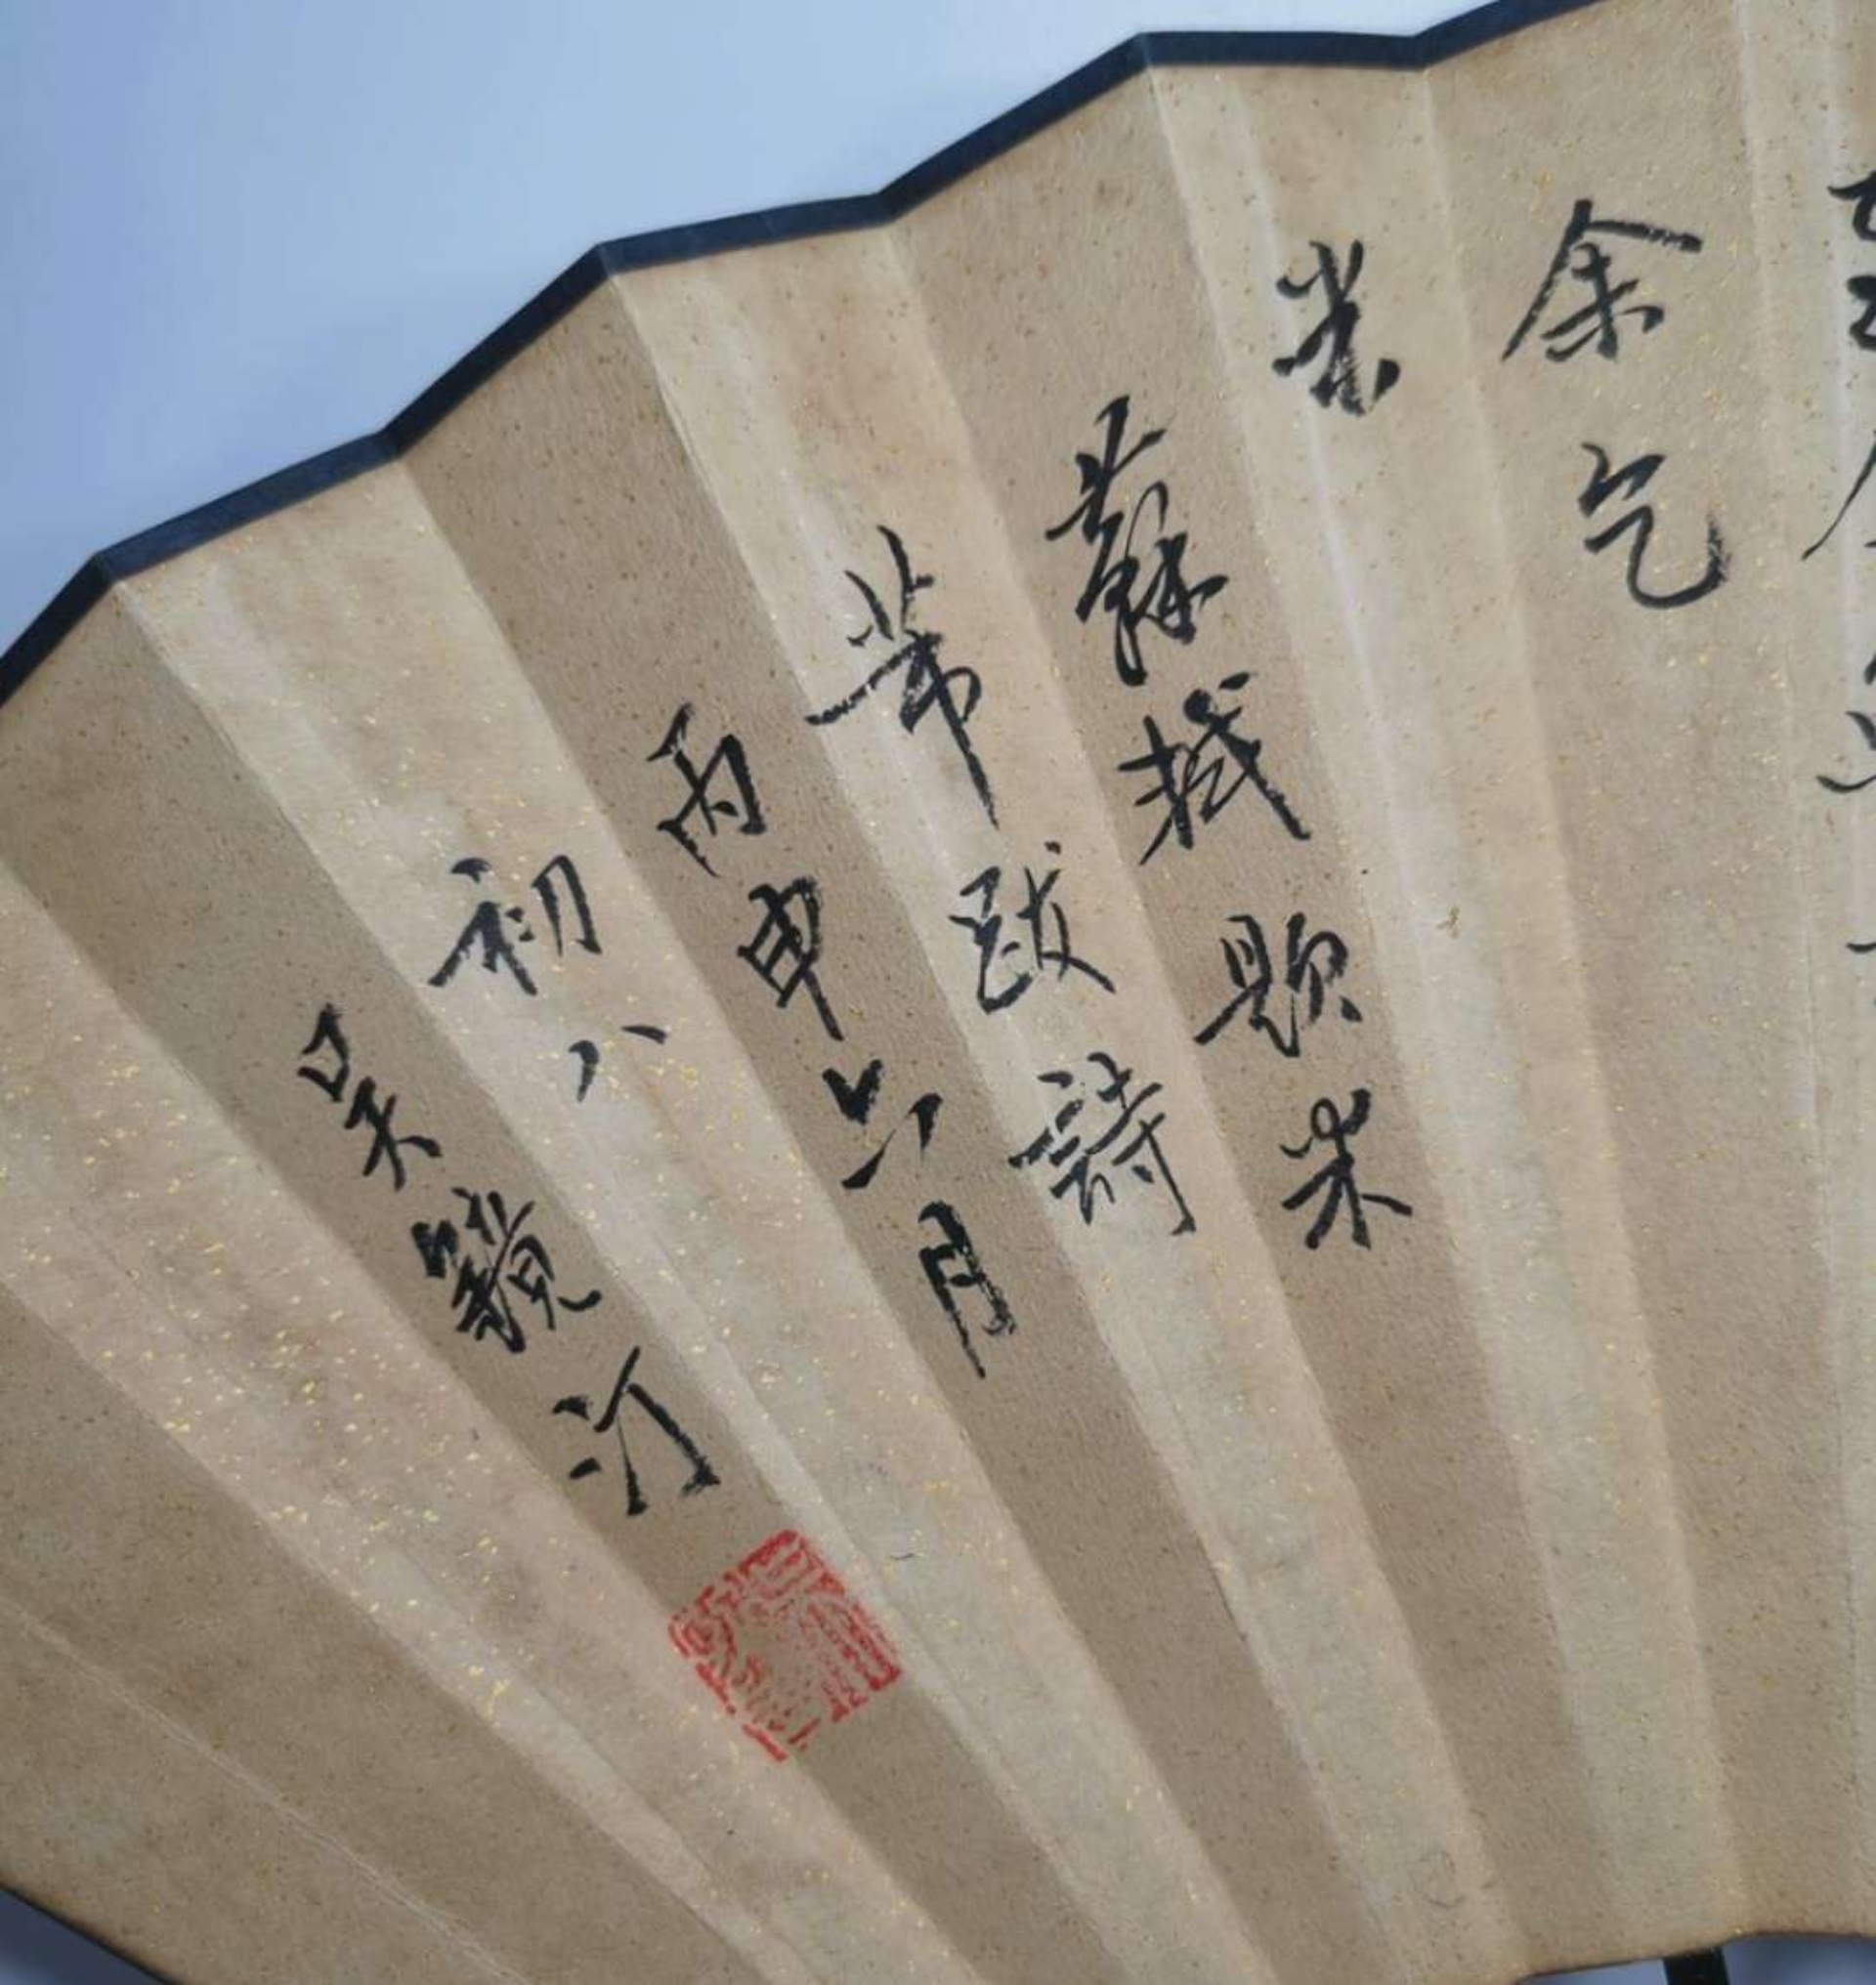 余乞
米
蘇軾題米
芾跋詩
丙申六月
初八
吴鏡汀